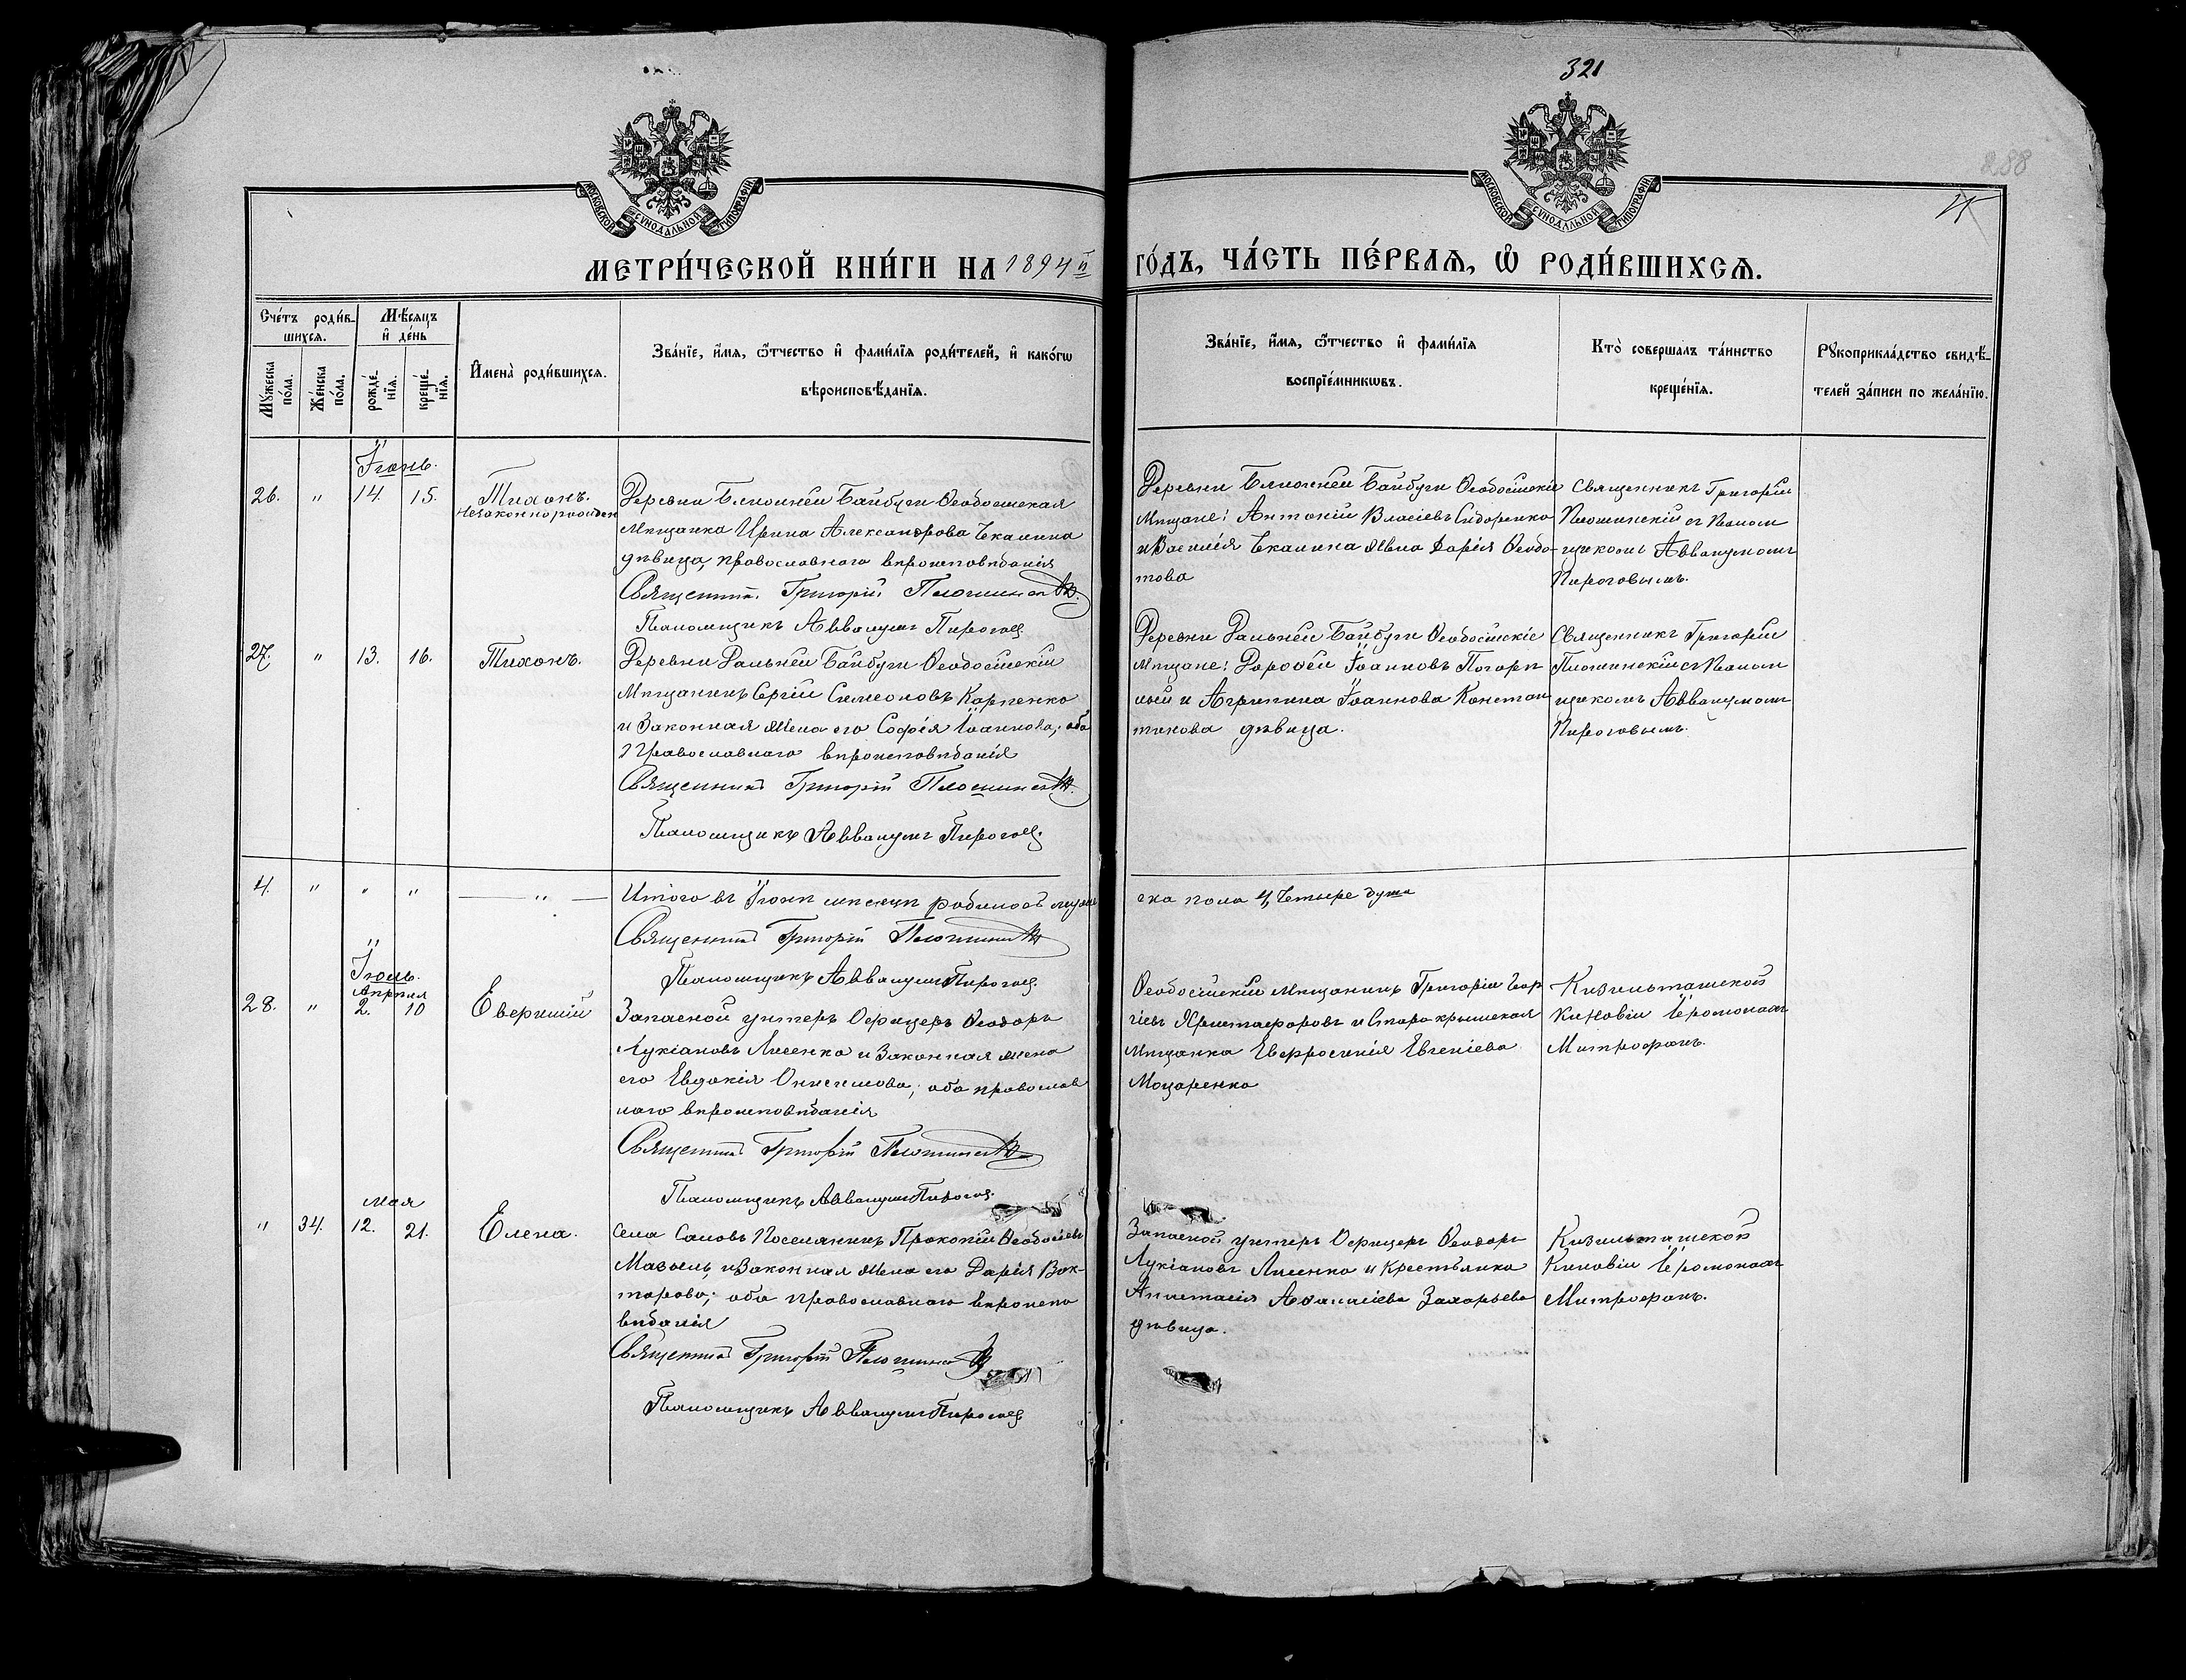 321
288
МОСКОВСКОЙ СѴНОДАЛЬНОЙ ТИПОГРАФІИ
МОСКОВСКОЙ СѴНОДАЛЬНОЙ ТИПОГРАФІИ
МЕТРИ́ЧЕСКОЙ КНИ́ГИ НА 1894й
ГО́ДЪ, ЧА́СТЬ ПЕ́РВАѦ, Ѡ҆ РОДИ́ВШИХСѦ.
Сче́тъ роди́в-
шихсѧ.
Мѣ́сѧцъ
и҆ де́нь
Мꙋ́жеска по́ла.
Же́нска по́ла.
рожде́-нїѧ.
креще́-нїѧ.
И҆мена̀ роди́вшихсѧ.
Зва́нїе, и҆́мѧ, ѻ҆́тчество и҆ фами́лїѧ роди́телей, и҆ како́гѡ
вѣроисповѣ́данїѧ.
Зва́нїе, и҆́мѧ, ѻ҆́тчество и҆ фами́лїѧ
воспрїе́мникѡвъ.
Кто̀ соверша́лъ та́инство
креще́нїѧ.
Рꙋкоприкла́дство свидѣ́-
телей за́писи по жела́нїю.
Іюнь.
26. " 14. 15. Тихонъ.
незаконнорожден
Деревни Ближней Байбуги Ѳеодосійская
Мѣщанка Ирина Александрова Чкалина
дѣвица, православнаго вѣроисповѣданія
Священникъ Григорій
Псаломщикъ Аввакумъ Пироговъ
Деревни Ближней Байбуги Ѳеодосійскіе
Мѣщане: Антоній Власіевъ Сидоренко
и Василія Чкалина жена Дарія Ѳеодо-
това
Священникъ Григорій
съ Псалом
щикомъ Аввакумомъ
Пироговымъ.
27. " 13. 16. Тихонъ.
Деревни Дальней Байбуги Ѳеодосійскій
Мѣщанинъ Сергій Симеоновъ Карпенко
и Законная жена его Софія Іоаннова; оба
Православнаго вѣроисповѣданія
Священникъ Григорій
Псаломщикъ Аввакумъ Пироговъ
Деревни Дальней Байбуги Ѳеодосійскіе
Мѣщане: Дороѳей Іоанновъ Погорѣ
лый и Агрипина Іоаннова Констан
тинова дѣвица.
Священникъ Григорій
съ Псалом
щикомъ Аввакумомъ
Пироговымъ.
4. " " " "
Итого въ Іюнѣ мѣсяцѣ родилось мужес
ска пола 4, Четыре душа
Священникъ Григорій
Псаломщикъ Аввакумъ Пироговъ
Іюль.
Апрѣля
28. " 2. 10 Еверкій
Запасной унтеръ Офицеръ Ѳеодоръ
Лукіановъ Лисенко и Законная жена
его Евдокія Онисимова; оба православ
наго вѣроисповѣданія
Священникъ Григорій
Псаломщикъ Аввакумъ Пироговъ
Ѳеодосійскій Мѣщанинъ Григорій Геор
гіевъ Христофоровъ и Старокрымская
Мѣщанка Евфросинія Евгеніева
Моцаренко
Кизильташской
Киновіи Іеромонахъ
Митрофанъ.
Мая
" 34. 12. 21. Елена.
Села Саловъ Поселянинъ Прокопій Ѳеодосіевъ
и Законная жена его Дарія Вик-
торова; оба православнаго вѣроиспо
вѣданія
Священникъ Григорій
Псаломщикъ Аввакумъ Пироговъ
Запасной унтеръ Офицеръ Ѳеодоръ
Лукіановъ Лисенко и Крестьянка
Анастасія Аѳанасіева Захарьева
дѣвица.
Кизильташской
Киновіи Іеромонахъ
Митрофанъ.